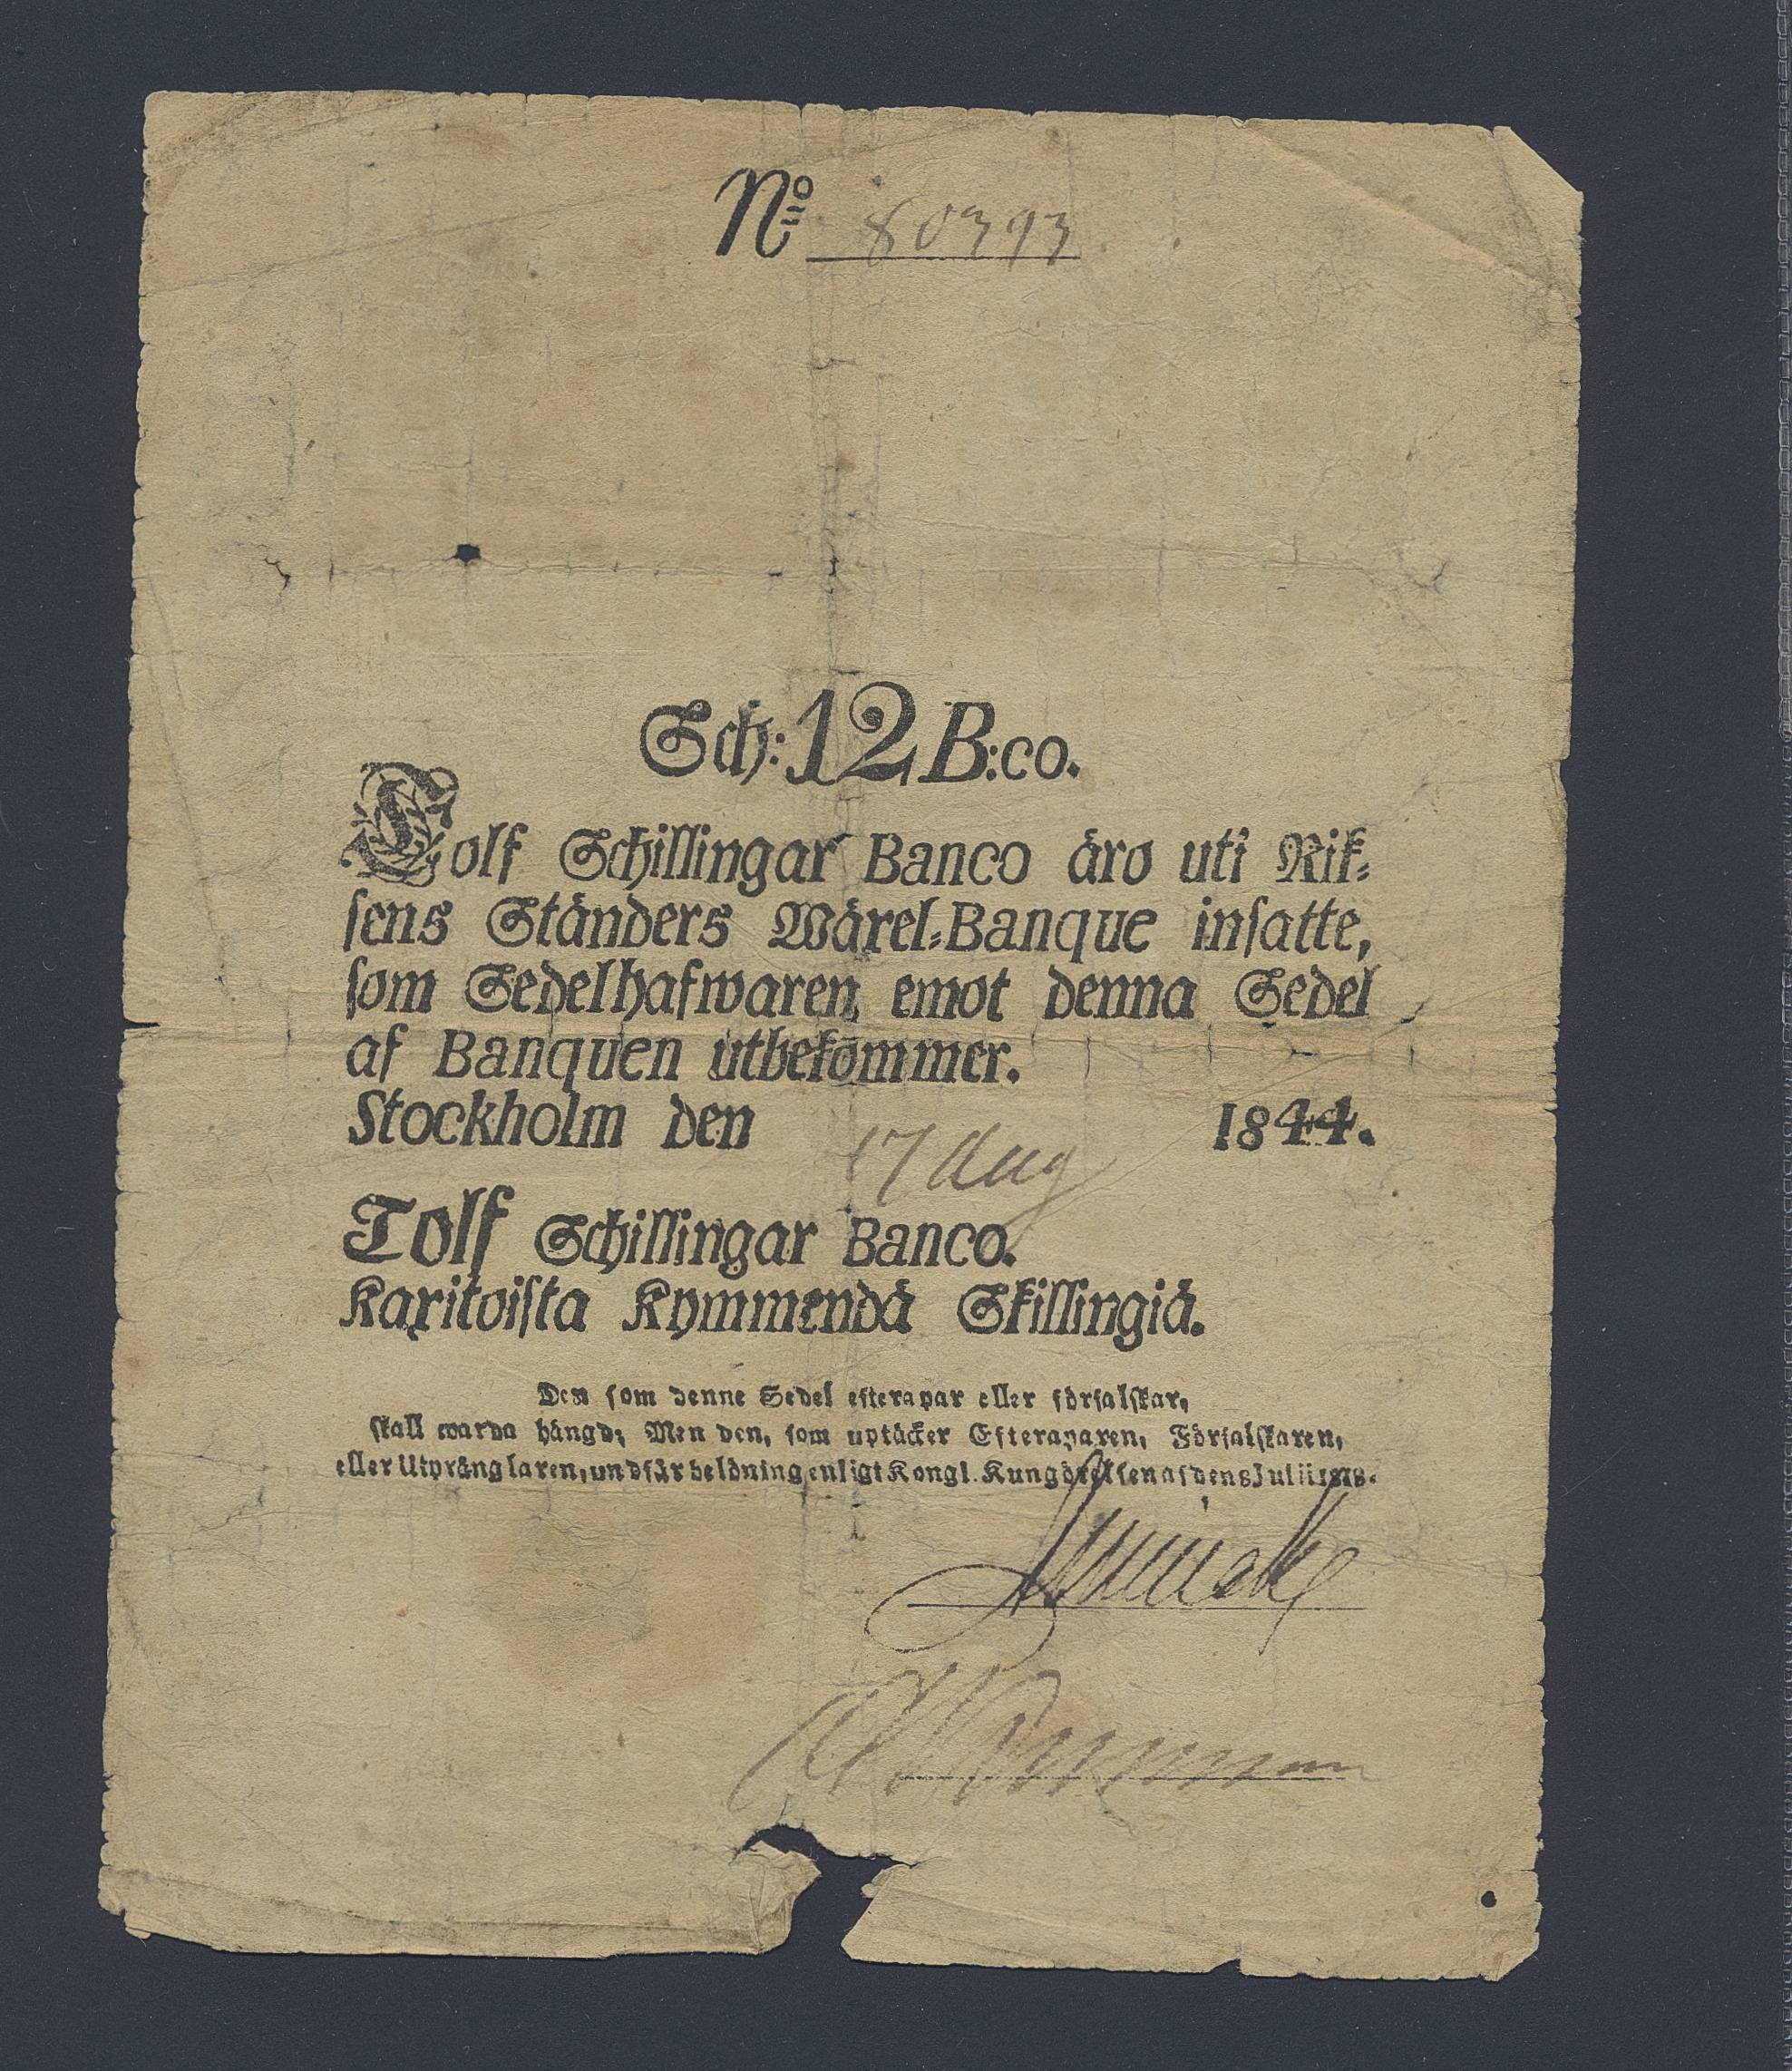 No 80393
Sch: 12 B:co.
Tolf Schillingar Banco äro uti Rik-
sens Ständers Wäxel-Banque insatte,
som Sedelhafwaren, emot denna Sedel
af Banquen utbekommer.
Stockholm den 17 Aug 1844.
Tolf Schillingar Banco.
Kaxitoista Kymmendä Skillingiä.
Den som denne Sedel efterapar eller förfalskar,
skall warda hängd; Men den, som uptäcker Efteraparen, Förfalskaren,
eller Utprånglaren, undfår belöning enligt Kongl. Kungörelsen af den 8 Julii 1818.